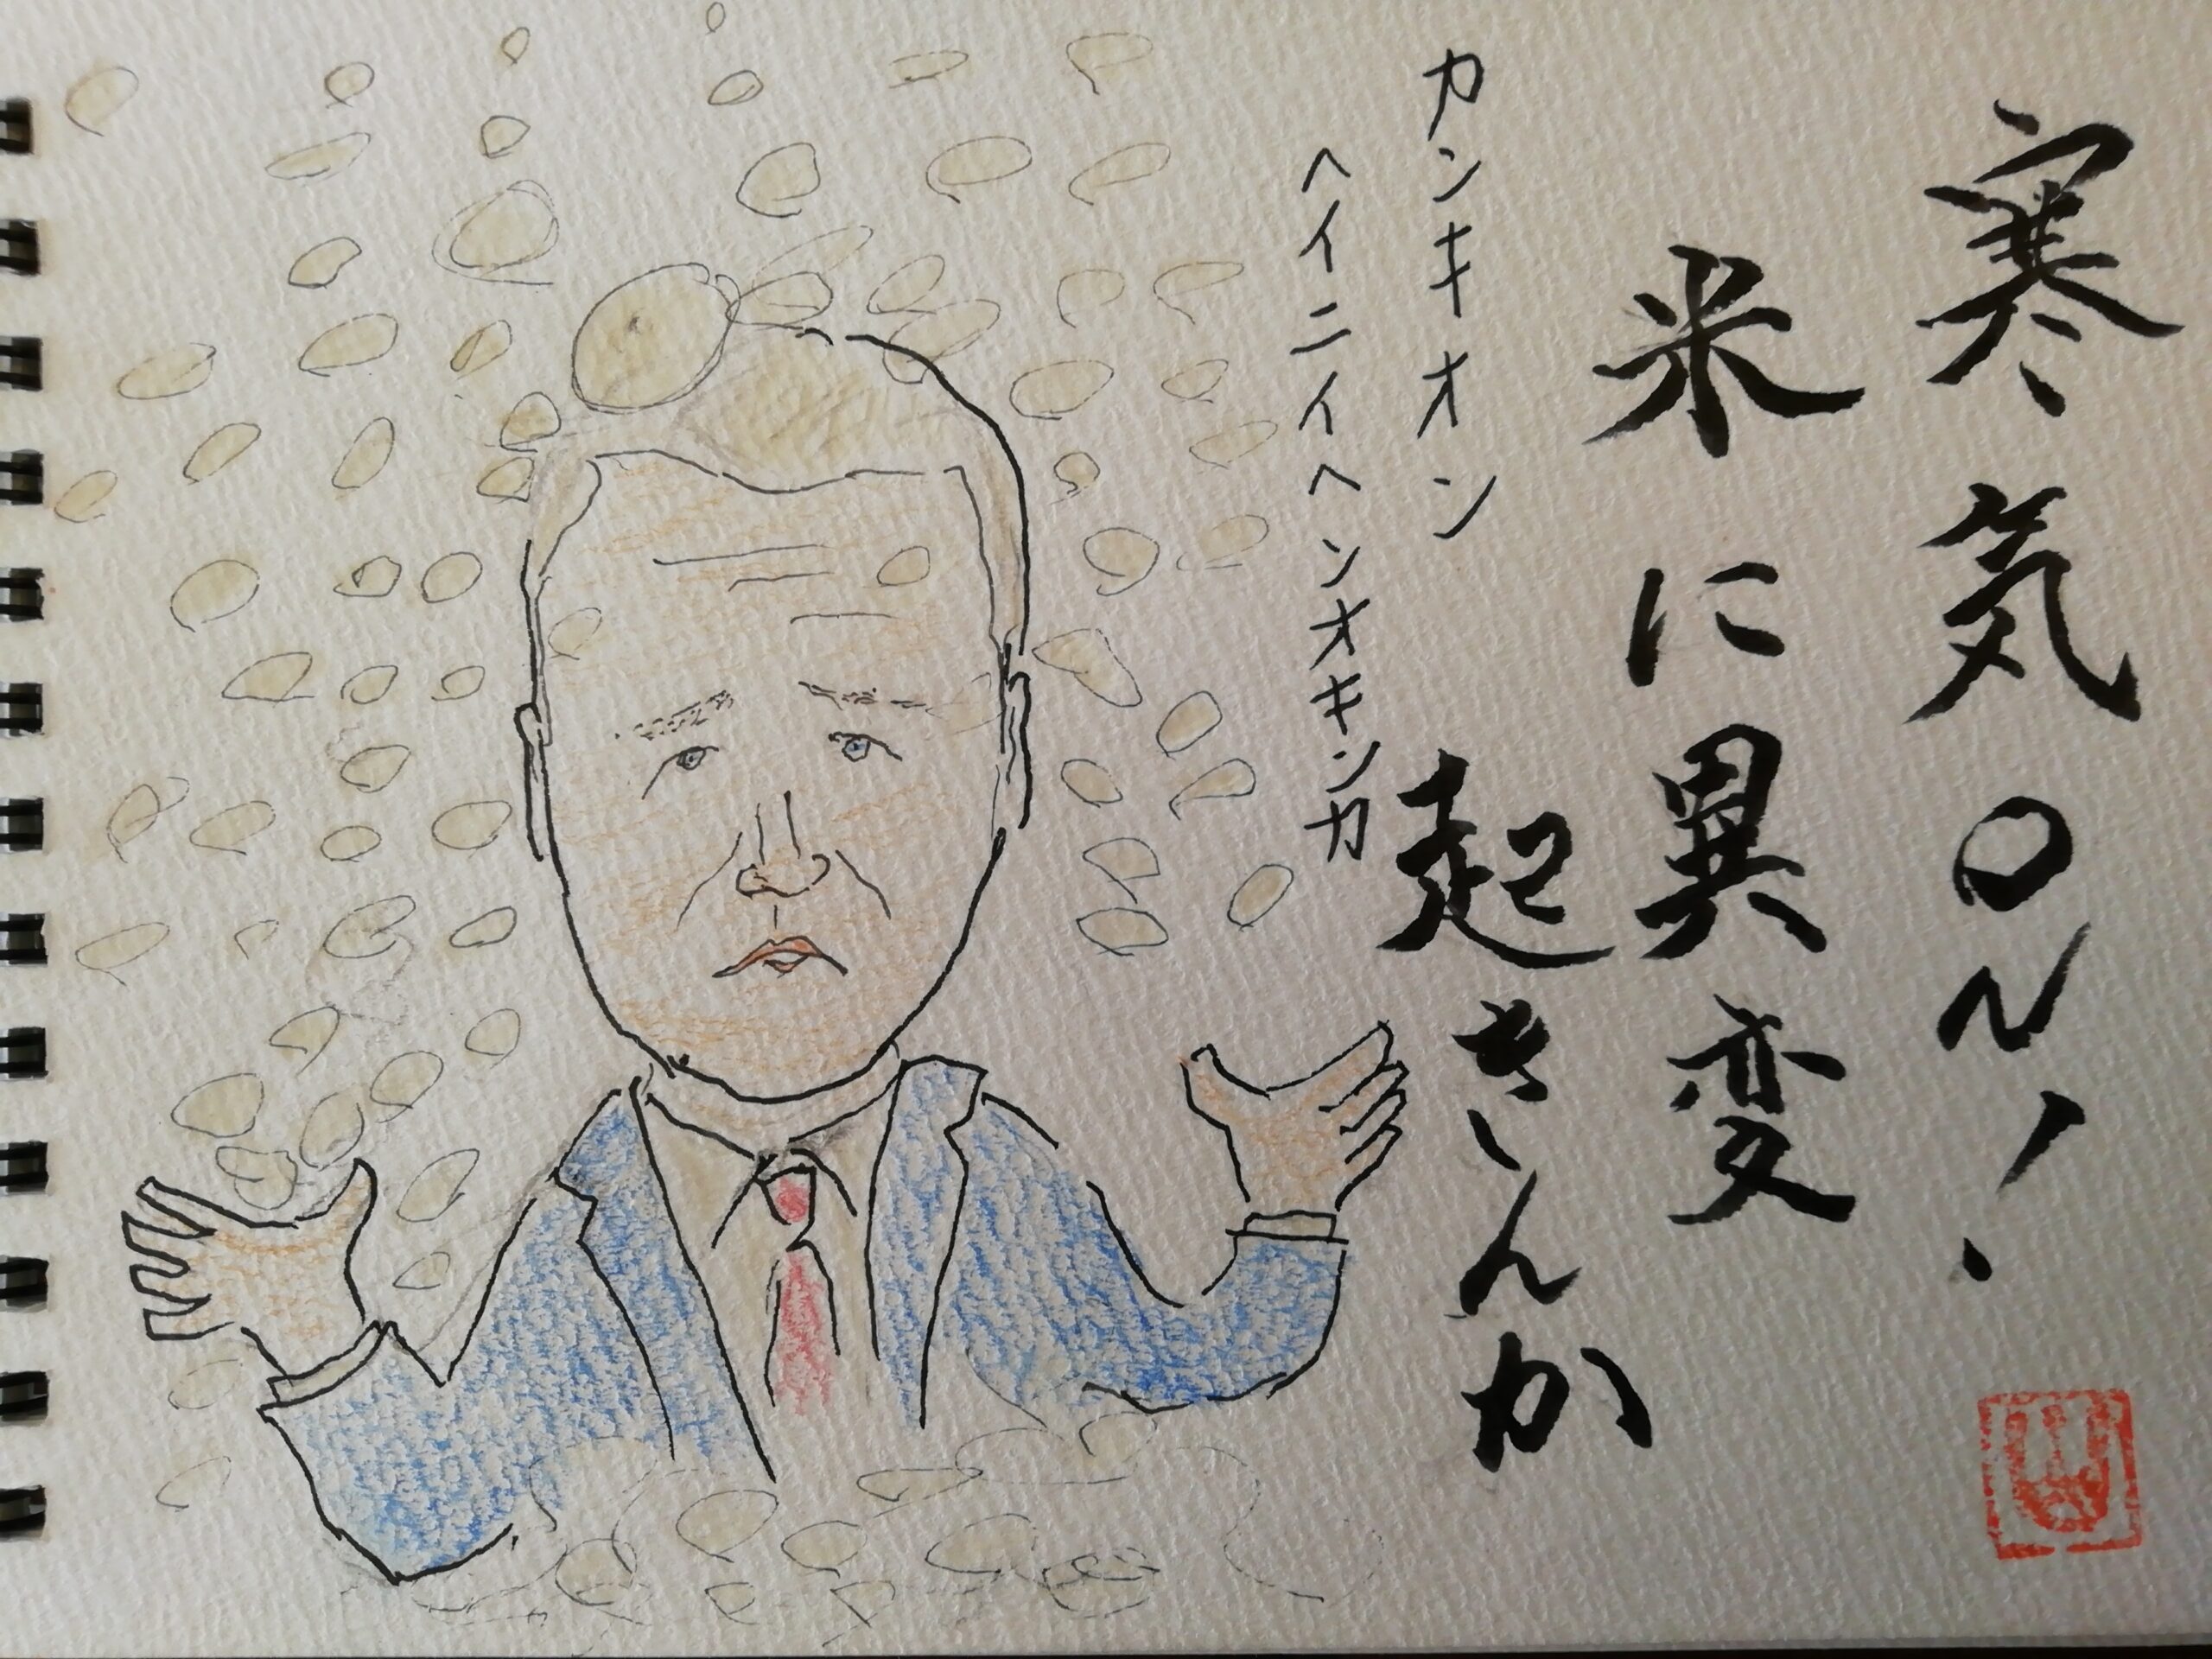 寒気ON!
米に異変
起きんか
カンキオン
ヘイニイヘンオキンカ